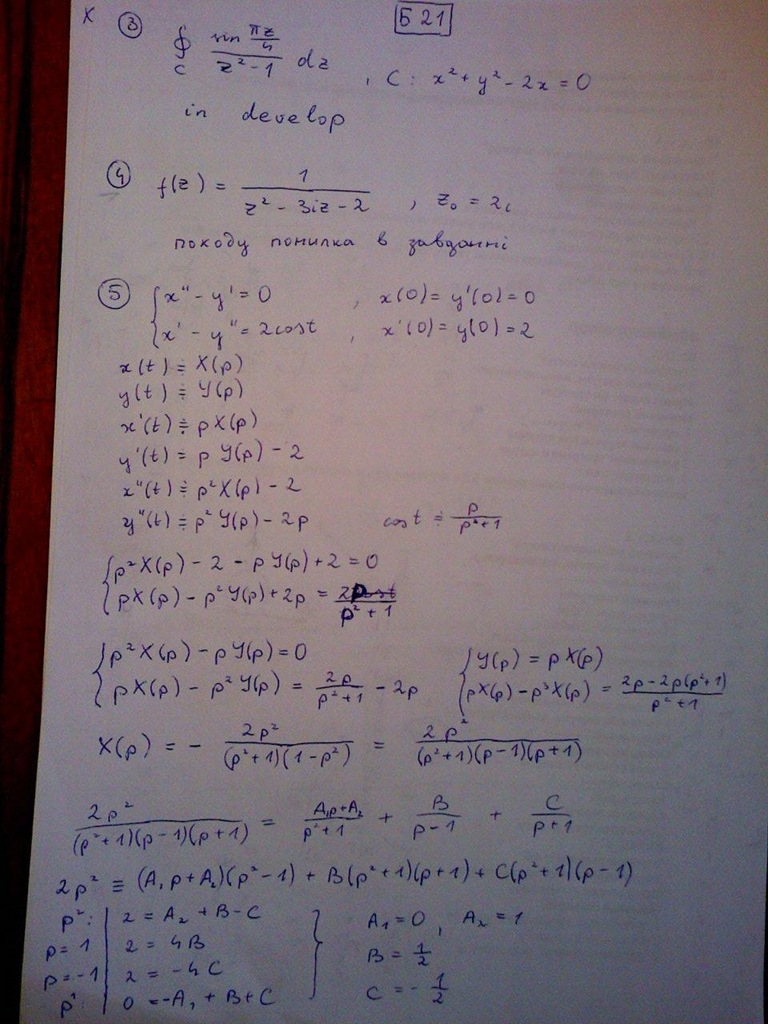 Б 21
③ ∮_C (sin πz/4)/(z² - 1) dz , C: x² + y² - 2x = 0
in develop
④ f(z) = 1/(z² - 3iz - 2) , z₀ = 2i
походу помилка в завданні
⑤ { x'' - y' = 0 , x(0) = y'(0) = 0
x' - y'' = 2cost , x'(0) = y(0) = 2
x(t) ≓ X(p)
y(t) ≓ Y(p)
x'(t) ≓ pX(p)
y'(t) = p Y(p) - 2
x''(t) ≓ p²X(p) - 2
y''(t) ≓ p² Y(p) - 2p cost ≓ p/(p²+1)
{ p²X(p) - 2 - pY(p) + 2 = 0
pX(p) - p²Y(p) + 2p = 2p/(p² + 1)
{ p²X(p) - pY(p) = 0 { Y(p) = pX(p)
pX(p) - p²Y(p) = 2p/(p²+1) - 2p pX(p) - p³X(p) = (2p - 2p(p²+1))/(p²+1)
X(p) = - 2p²/((p²+1)(1-p²)) = 2p²/((p²+1)(p-1)(p+1))
2p²/((p²+1)(p-1)(p+1)) = (A₁p+A₂)/(p²+1) + B/(p-1) + C/(p+1)
2p² ≡ (A₁p+A₂)(p²-1) + B(p²+1)(p+1) + C(p²+1)(p-1)
p²: | 2 = A₂ + B - C } A₁ = 0, A₂ = 1
p = 1 | 2 = 4B B = 1/2
p = -1 | 2 = -4C C = - 1/2
p¹: | 0 = -A₁ + B + C